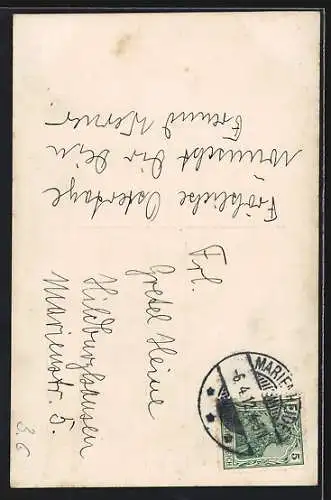 Fröhliche Ostertage
wünscht Dir Dein
Freund Werner.
Frl.
Gretel Heine
Hildburghausen
Marienstr. 5.
MARIENHEIDE
6.4.
5
3.6